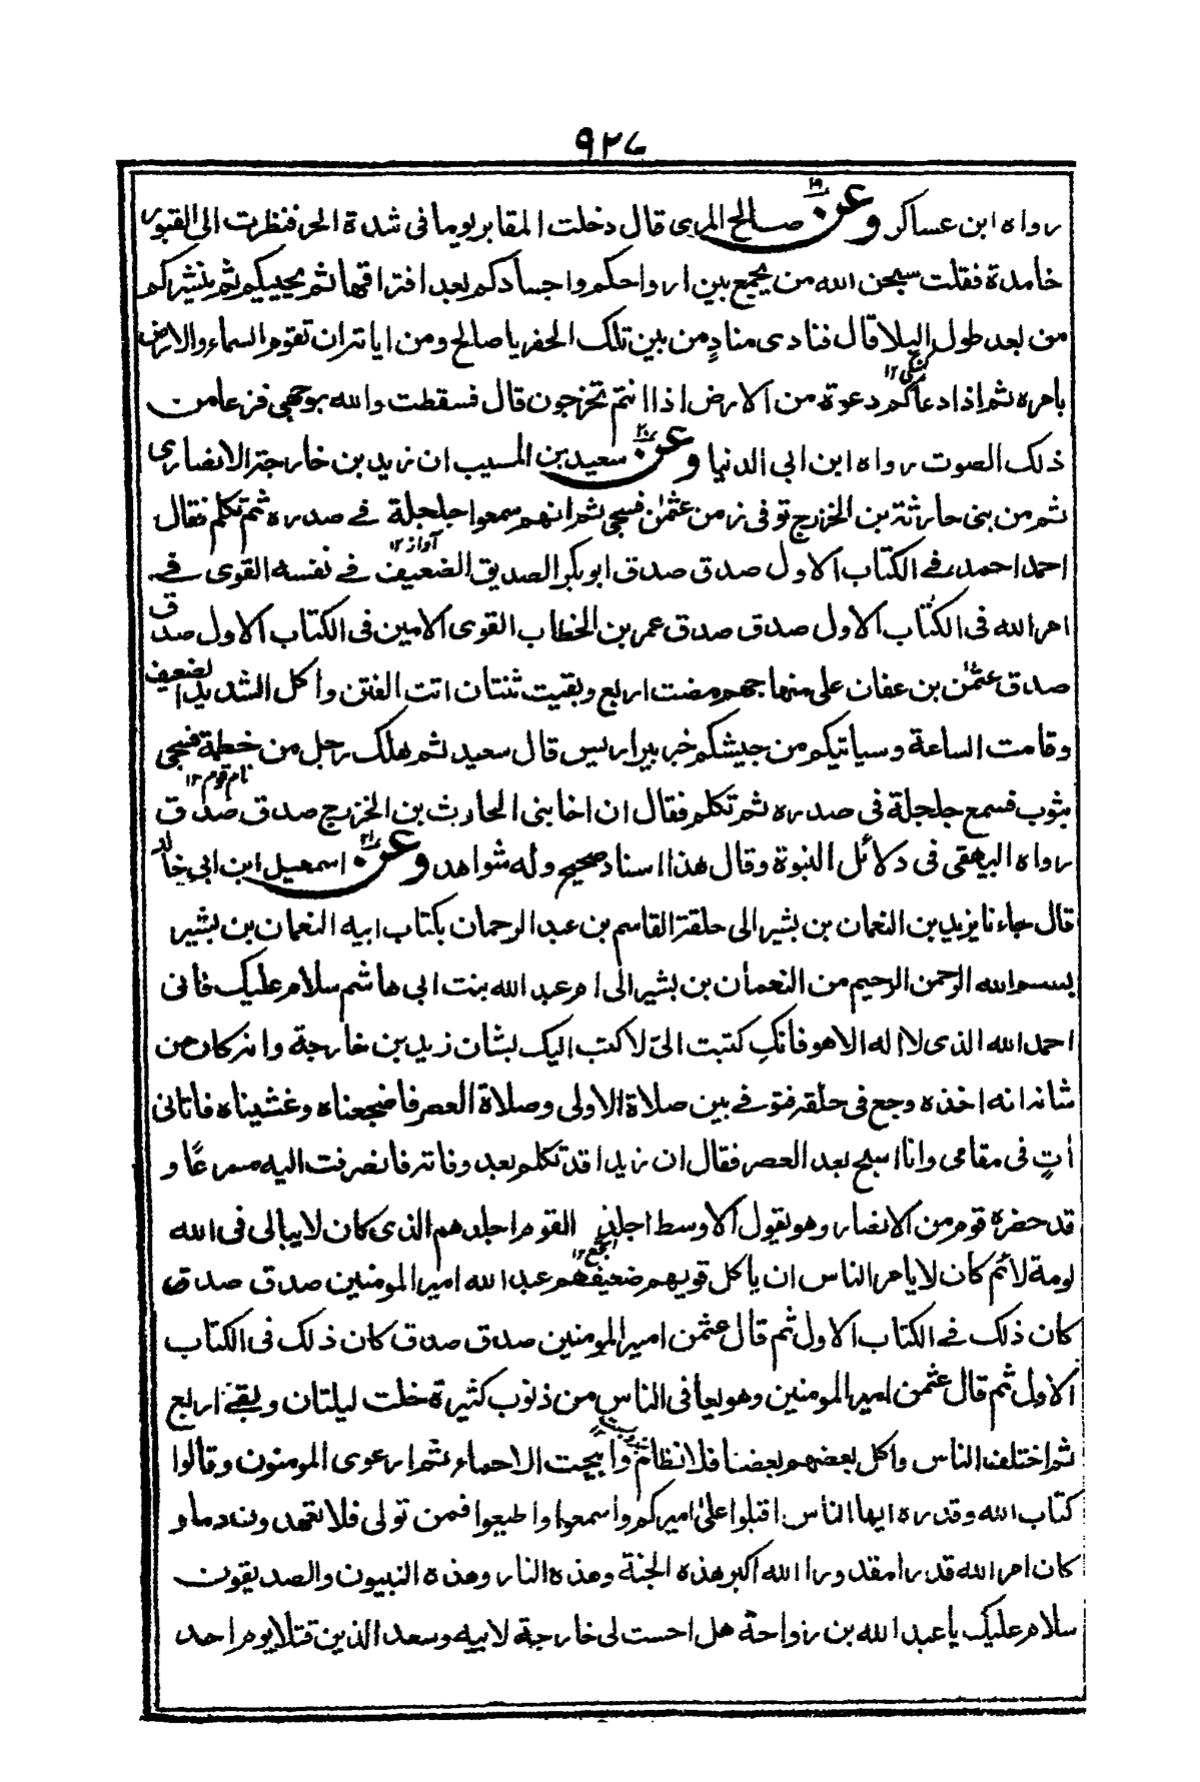 ٩٢٧
رواه ابن عساكر وعن ١٩ صالح المري قال دخلت المقابر يوما في شدة الحر فنظرت الى القبور
خامدة فقلت سبحن الله من يجمع بين ارواحكم واجسادكم بعد افتراقها ثم يحييكم ثم ينشركم
من بعد طول البلا قال فنادى منادٍ من بين تلك الحفر يا صالح ومن اياته ان تقوم السماء والارض
بامره ثم اذا دعاكم دعوة من الارض اذا انتم تخرجون قال فسقطت والله بوجهي فزعا من
ذلك الصوت رواه ابن ابي الدنيا وعن ٢٠ سعيد بن المسيب ان زيد بن خارجة الانصارى
ثم من بنى حارثة بن الخزرج توفى زمن عثمن فسجي ثم انهم سمعوا جلجلة في صدره ثم تكلم فقال
آواز ١٢
احمد احمد في الكتاب الاول صدق صدق ابو بكر الصديق الضعيف في نفسه القوى في
امر الله فى الكتاب الاول صدق صدق عمر بن الخطاب القوى الامين فى الكتاب الاول صدق
صدق عثمن بن عفان على منهاجهم مضت اربع وبقيت ثنتان اتت الفتن واكل الشديد الضعيف
وقامت الساعة وسياتيكم من جيشكم خبر بير اريس قال سعيد ثم هلك رجل من خطمة فسجي
نام قوم ١٢
بثوب فسمع جلجلة فى صدره ثم تكلم فقال ان اخا بنى الحارث بن الخزرج صدق صدق
رواه البيهقى فى دلائل النبوة وقال هذا اسناد صحيح وله شواهد وعن ٢١ اسمعيل ابن ابي خالد
قال جاءنا يزيد بن النعمان بن بشير الى حلقة القاسم بن عبد الرحمان بكتاب ابيه النعمان بن بشير
بسم الله الرحمن الرحيم من النعمان بن بشير الى ام عبد الله بنت ابي هاشم سلام عليك فانى
احمد الله الذى لا اله الا هو فانكِ كتبت الىّ لاكتب اليك بشان زيد بن خارجة وانه كان من
شانه انه اخذه وجع فى حلقه فتوفے بين صلاة الاولى وصلاة العصر فاضجعناه وغشيناه فاتانى
أتٍ فى مقامى وانا اسبح بعد العصر فقال ان زيدا قد تكلم بعد وفاته فانصرفت اليه مسرعًا و
قد حضره قوم من الانصار وهو يقول الاوسط اجلد القوم اجلدهم الذى كان لا يبالى فى الله
لومة لائم كان لا يامر الناس ان ياكل قويهم ضعيفهم عبد الله امير المومنين صدق صدق
كان ذلك في الكتاب الاول ثم قال عثمن امير المومنين صدق صدق كان ذلك فى الكتاب
الاول ثم قال عثمن امير المومنين وهو يعافى الناس من ذنوب كثيرة خلت ليلتان وبقے اربع
ثم اختلف الناس واكل بعضهم بعضا فلا نظام وابيحت الاحماء ثم ارعوى المومنون وقالوا
كتاب الله وقدره ايها الناس اقبلوا على اميركم واسمعوا واطيعوا فمن تولى فلا تعهدون دما و
كان امر الله قدرا مقدورا الله اكبر هذه الجنة وهذه النار وهذه النبيون والصديقون
سلام عليك يا عبد الله بن رواحة هل احست لى خارجة لابيه وسعد الذين قتلا يوم احد